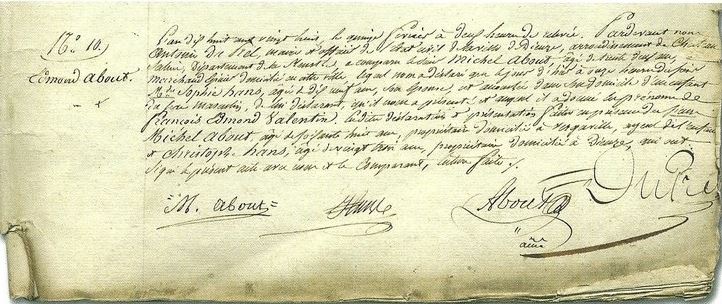 N.° 10.
Edmond About.
L'an dix huit cent vingt huit, le quinze février à deux heures de relevée. Pardevant nous
Antoine Du Prel, maire et officier de l'état civil de la ville de Dieuze, arrondissement de Château
Salins, département de la Meurthe, a comparu le sieur Michel About, âgé de trente deux ans,
marchand épicier domicilié en cette ville. Lequel nous a déclaré que le jour d'hier à onze heures du soir
M.de Sophie hans, âgée de dix neuf ans, son épouse est accouchée dans son domicile d'un enfant
du sexe masculin, de lui déclarant, qu'il nous a présenté et auquel il a donné les prénoms de
François Edmond Valentin. Lesdites déclaration et présentation faites en présence de Jean
Michel About, âgé de soixante huit ans, propriétaire domicilié à Vergaville, ayeul de l'enfant
et Christophe hans, âgé de vingt trois ans, propriétaire domicilié à Dieuze, qui ont
signé le présent acte avec nous et le comparant, lecture faite.
M. About
Hans
About
ainé